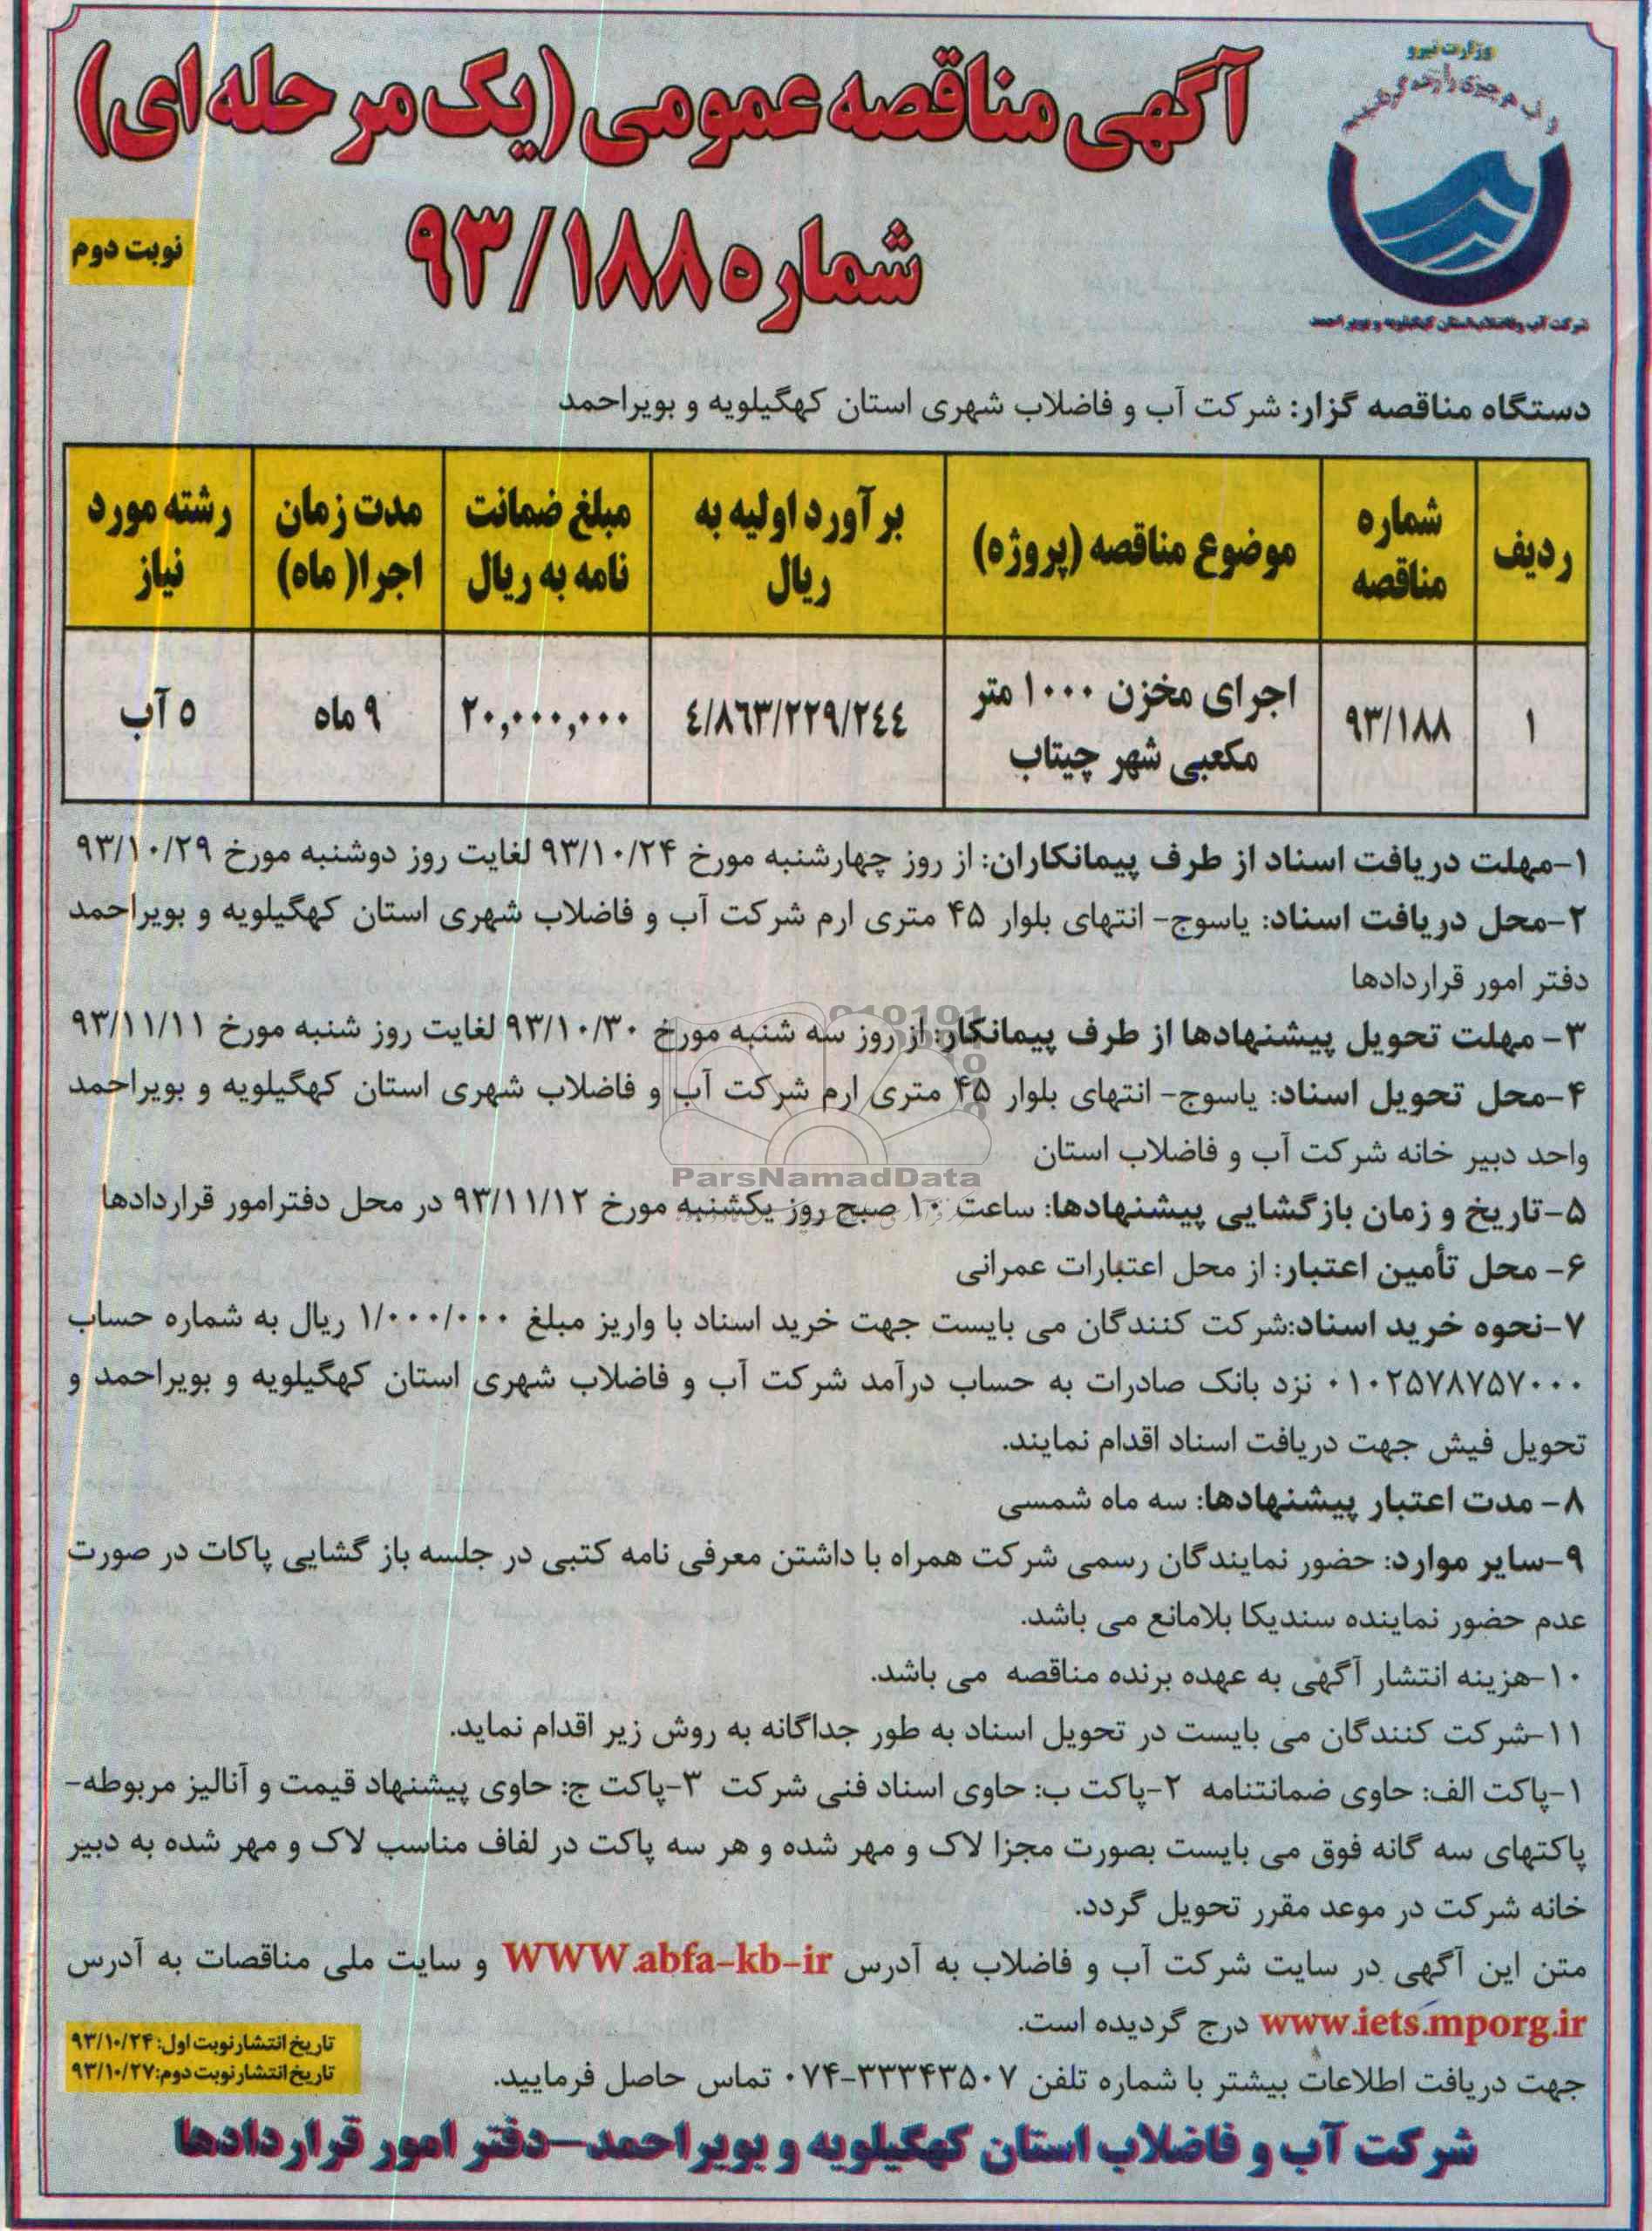 وزارت نیرو
آگهی مناقصه عمومی (یک مرحله ای)
شماره ۹۳/۱۸۸
نوبت دوم
شرکت آب و فاضلاب استان کهگیلویه و بویر احمد
دستگاه مناقصه گزار: شرکت آب و فاضلاب شهری استان کهگیلویه و بویراحمد
ردیف
شماره مناقصه
موضوع مناقصه (پروژه)
برآورد اولیه به ریال
مبلغ ضمانت نامه به ریال
مدت زمان اجرا( ماه)
رشته مورد نیاز
۱
۹۳/۱۸۸
اجرای مخزن ۱۰۰۰ متر مکعبی شهر چیتاب
٤/٨٦٣/٢٢٩/٢٤٤
۲۰,۰۰۰,۰۰۰
۹ ماه
۵ آب
۱-مهلت دریافت اسناد از طرف پیمانکاران: از روز چهارشنبه مورخ ۹۳/۱۰/۲۴ لغایت روز دوشنبه مورخ ۹۳/۱۰/۲۹
۲-محل دریافت اسناد: یاسوج- انتهای بلوار ۴۵ متری ارم شرکت آب و فاضلاب شهری استان کهگیلویه و بویراحمد
دفتر امور قراردادها
۳- مهلت تحویل پیشنهادها از طرف پیمانکار: از روز سه شنبه مورخ ۹۳/۱۰/۳۰ لغایت روز شنبه مورخ ۹۳/۱۱/۱۱
۴-محل تحویل اسناد: یاسوج- انتهای بلوار ۴۵ متری ارم شرکت آب و فاضلاب شهری استان کهگیلویه و بویراحمد
واحد دبیر خانه شرکت آب و فاضلاب استان
ParsNamadData
۵-تاریخ و زمان بازگشایی پیشنهادها: ساعت ۱۰ صبح روز یکشنبه مورخ ۹۳/۱۱/۱۲ در محل دفترامور قراردادها
۶- محل تأمین اعتبار: از محل اعتبارات عمرانی
۷-نحوه خرید اسناد:شرکت کنندگان می بایست جهت خرید اسناد با واریز مبلغ ۱/۰۰۰/۰۰۰ ریال به شماره حساب
۰۱۰۲۵۷۸۷۵۷۰۰۰ نزد بانک صادرات به حساب درآمد شرکت آب و فاضلاب شهری استان کهگیلویه و بویراحمد و
تحویل فیش جهت دریافت اسناد اقدام نمایند.
۸- مدت اعتبار پیشنهادها: سه ماه شمسی
۹-سایر موارد: حضور نمایندگان رسمی شرکت همراه با داشتن معرفی نامه کتبی در جلسه باز گشایی پاکات در صورت
عدم حضور نماینده سندیکا بلامانع می باشد.
۱۰-هزینه انتشار آگهی به عهده برنده مناقصه می باشد.
۱۱-شرکت کنندگان می بایست در تحویل اسناد به طور جداگانه به روش زیر اقدام نماید.
۱-پاکت الف: حاوی ضمانتنامه ۲-پاکت ب: حاوی اسناد فنی شرکت ۳-پاکت ج: حاوی پیشنهاد قیمت و آنالیز مربوطه-
پاکتهای سه گانه فوق می بایست بصورت مجزا لاک و مهر شده و هر سه پاکت در لفاف مناسب لاک و مهر شده به دبیر
خانه شرکت در موعد مقرر تحویل گردد.
متن این آگهی در سایت شرکت آب و فاضلاب به آدرس WWW.abfa-kb-ir و سایت ملی مناقصات به آدرس
www.iets.mporg.ir درج گردیده است.
جهت دریافت اطلاعات بیشتر با شماره تلفن ۳۳۳۴۳۵۰۷-۰۷۴ تماس حاصل فرمایید.
تاریخ انتشار نوبت اول: ۹۳/۱۰/۲۴
تاریخ انتشار نوبت دوم: ۹۳/۱۰/۲۷
شرکت آب و فاضلاب استان کهگیلویه و بویراحمد-دفتر امور قراردادها